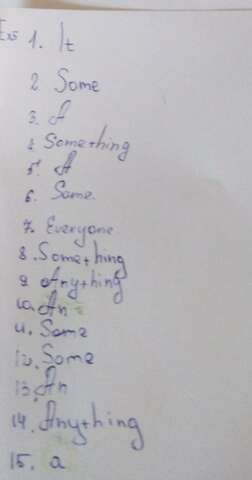 Ex5 1. It
2 Some
3. A
4 Something
5. A
6. Some.
7. Everyone
8. Something
9. Anything
10. An
11. Some
12. Some
13. An
14. Anything
15. a